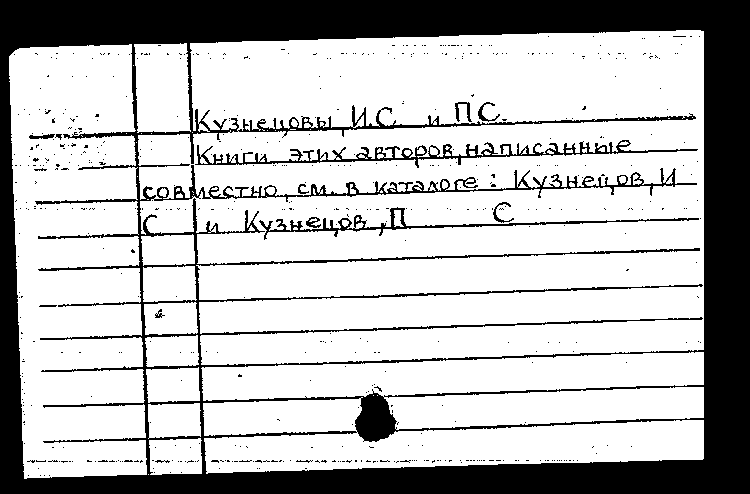 Кузнецовы, И.С. и П.С.
Книги этих авторов, написанные
совместно, см. в каталоге: Кузнецов, И
С и Кузнецов, П С